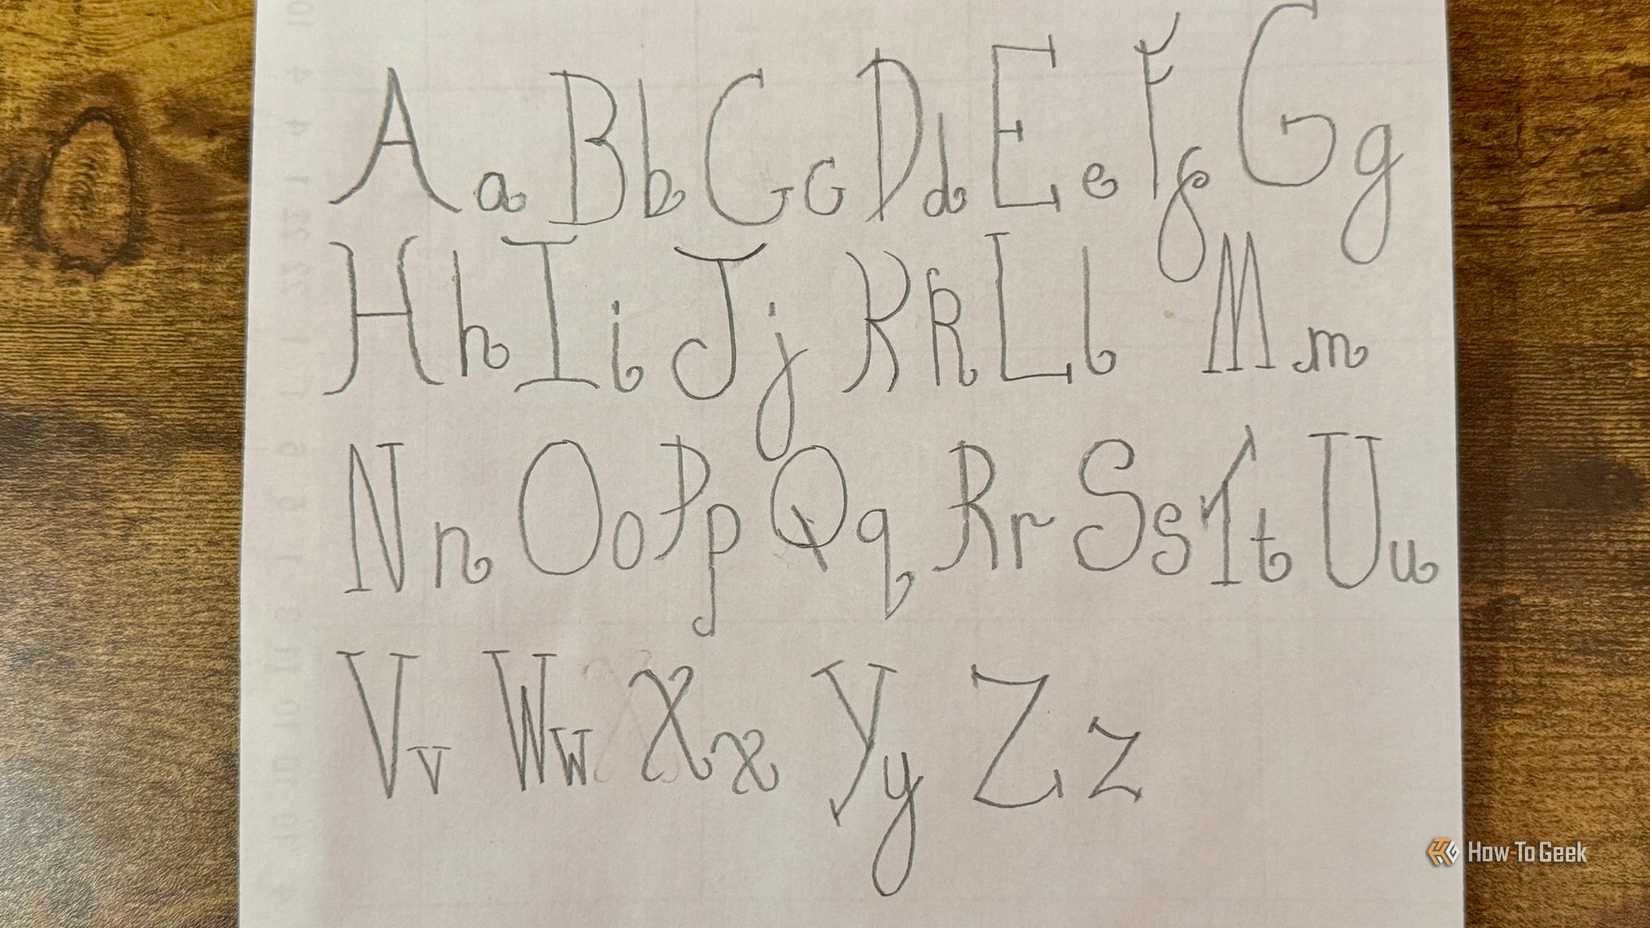 A a B b C c D d E e F f G g
H h I i J j K k L l M m
N n O o P p Q q R r S s T t U u
V v W w X x Y y Z z
How-To Geek